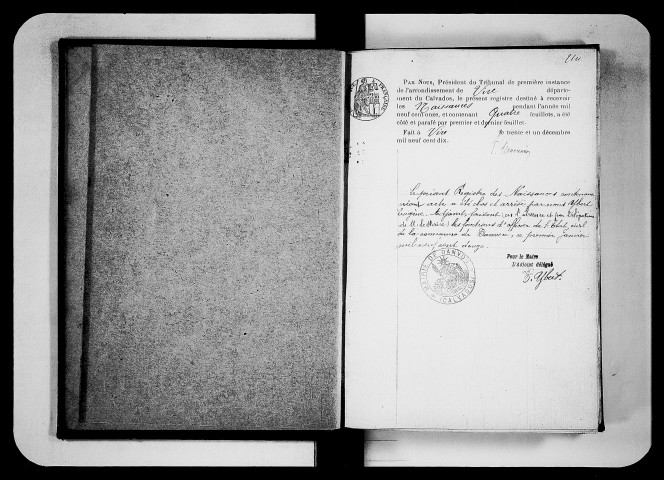 PAR NOUS, Président du Tribunal de première instance
de l'arrondissement de Vire départe-
ment du Calvados, le présent registre destiné à recevoir
les Naissances pendant l'année mil
neuf cent onze, et contenant Quatre feuillets, a été
côté et parafé par premier et dernier feuillet.
Fait à Vire le trente et un décembre
mil neuf cent dix.
Le présent Registre des Naissances contenant
acte a été clos et arrêté par nous Albert
Eugène Adjoint faisant, en l'absence et par délégation
de M. le Maire, les fonctions d'officier de l'État civil
de la commune de Danvou, ce premier janvier
mil neuf cent douze.
Pour le Maire
L'Adjoint délégué
E. Albert.
MAIRIE DE DANVOU
(CALVADOS)